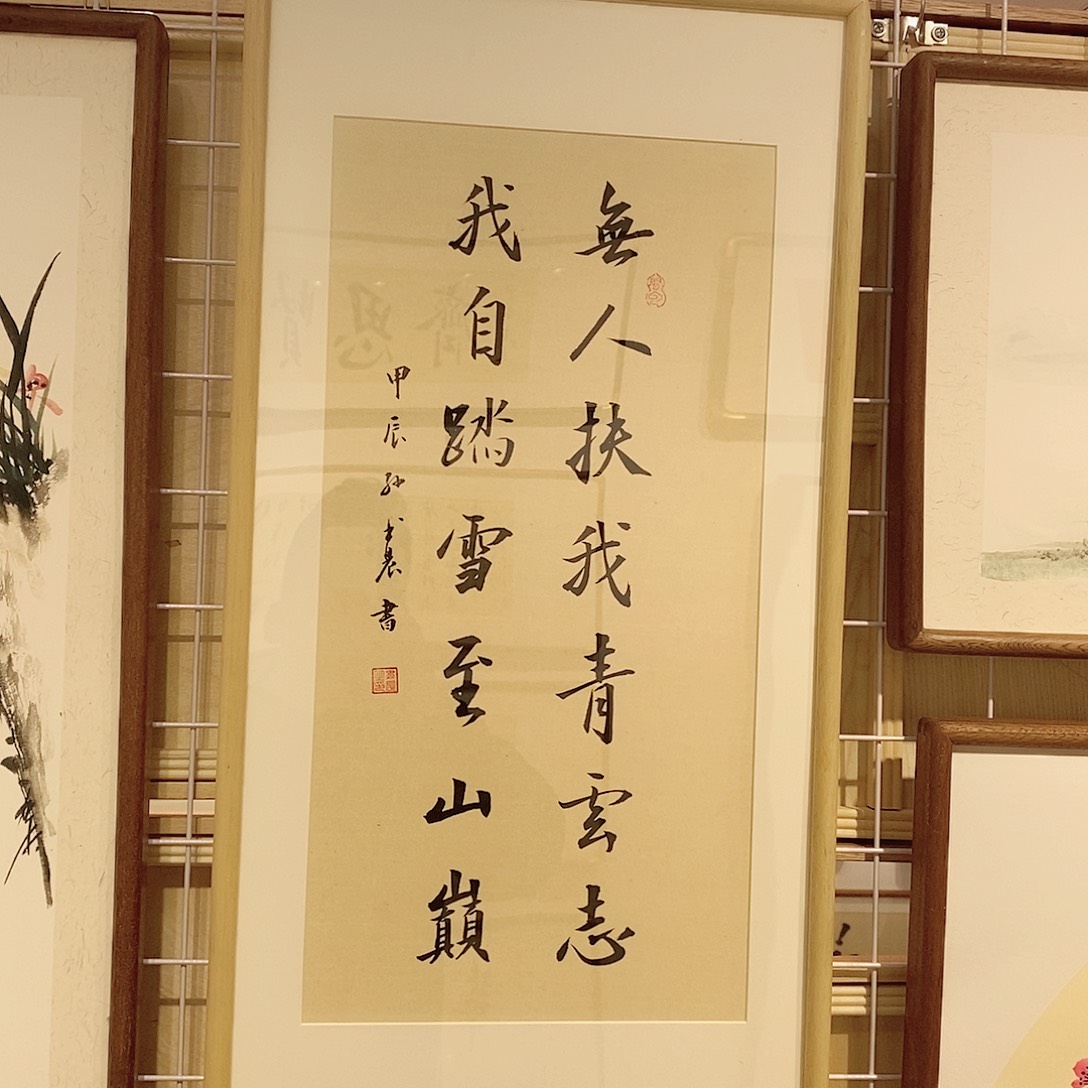 無人扶我青雲志
我自踏雪至山巔
甲辰孙書